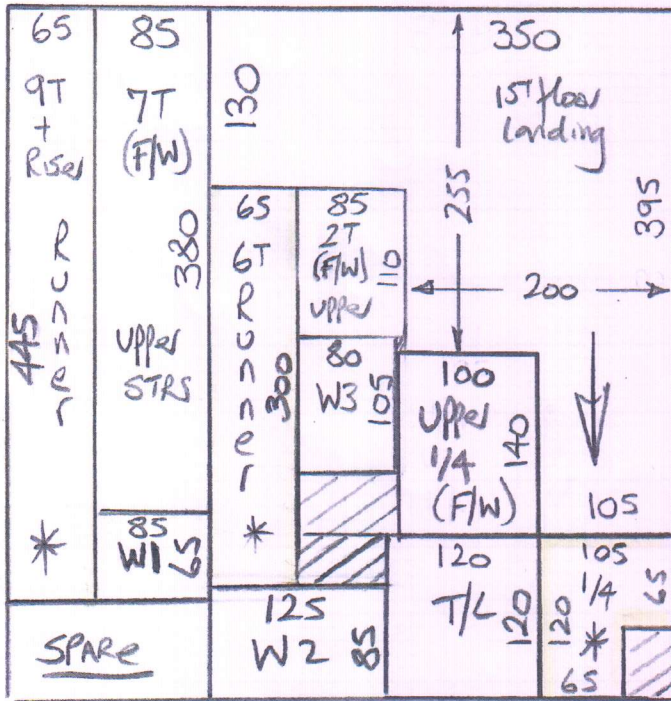 65
9T
+
Riser
Runner
445
*
85
7T
(F/W)
380
Upper
STRS
85
W1 65
SPARe
130
65
6T
Runner
300
*
85
2T
(F/W)
upper
110
80
W3 105
125
W2 85
350
1ST floor
Landing
255
395
200
100
Upper
1/4
(F/W)
140
105
120
T/L 120
105
1/4
*
120
65
65